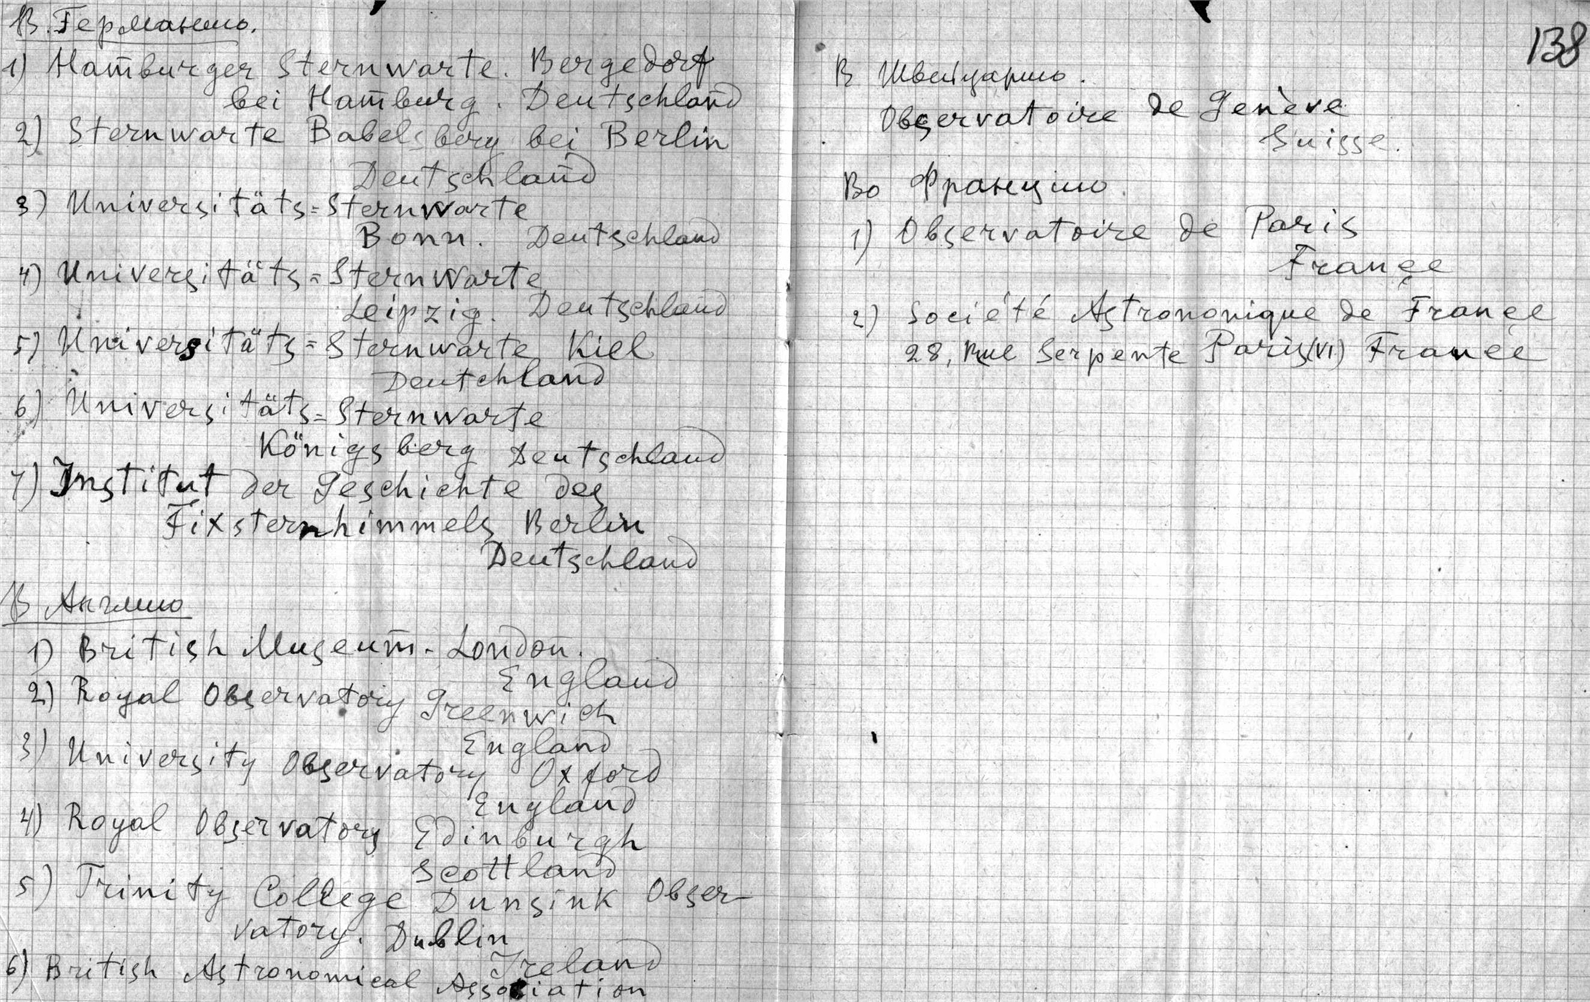 В Германию.
1) Hamburger Sternwarte. Bergedorf
bei Hamburg. Deutschland
2) Sternwarte Babelsberg bei Berlin
Deutschland
3) Universitäts=Sternwarte
Bonn. Deutschland
4) Universitäts=Sternwarte
Leipzig. Deutschland
5) Universitäts=Sternwarte Kiel
Deutchland
6) Universitäts=Sternwarte
Königsberg Deutschland
7) Institut der Geschichte des
Fixsternhimmels Berlin
Deutschland
В Англию
1) British Museum - London.
England
2) Royal Observatory Greenwich
England
3) University Observatory Oxford
England
4) Royal Observatory Edinburgh
Scottland
5) Trinity College Dunsink Obser-
vatory. Dublin
Ireland
6) British Astronomical Association
138
В Швейцарию.
Observatoire de Genève
Suisse.
Во Францию.
1) Observatoire de Paris
France
2) Société Astrononique de France
28, Rue Serpente Paris (VI) France